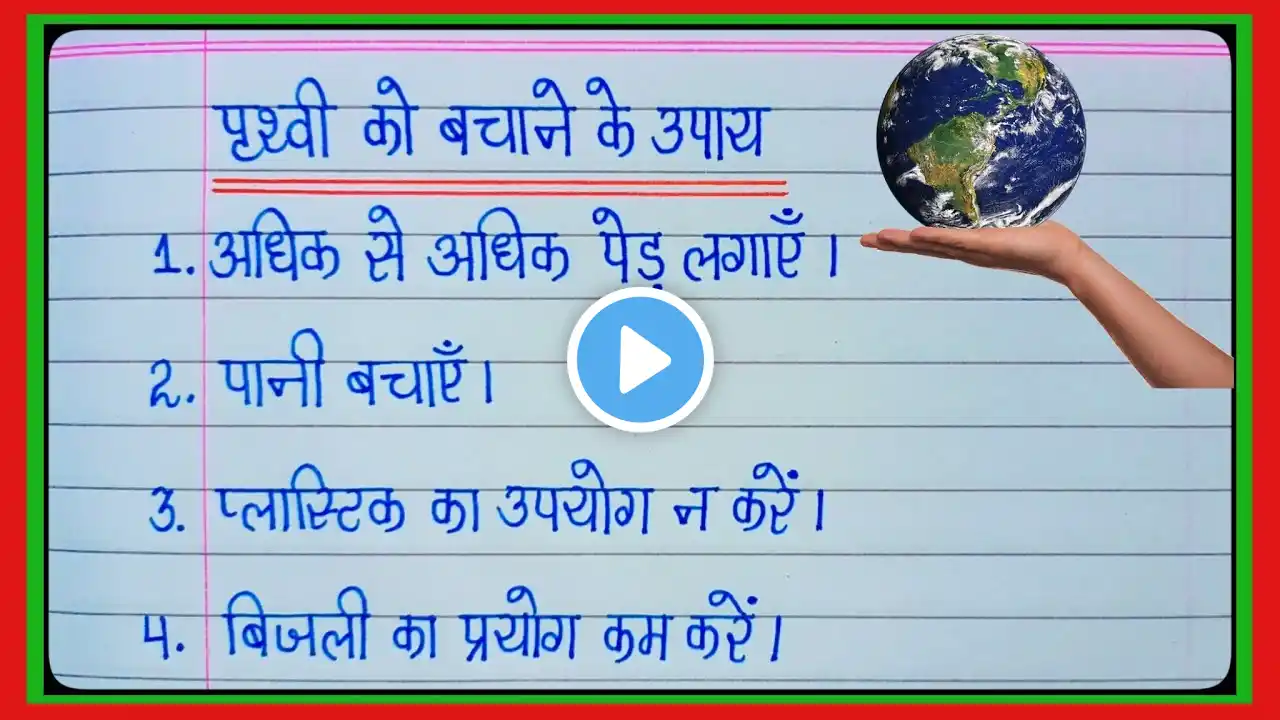 पृथ्वी को बचाने के उपाय
1. अधिक से अधिक पेड़ लगाएँ।
2. पानी बचाएँ।
3. प्लास्टिक का उपयोग न करें।
4. बिजली का प्रयोग कम करें।